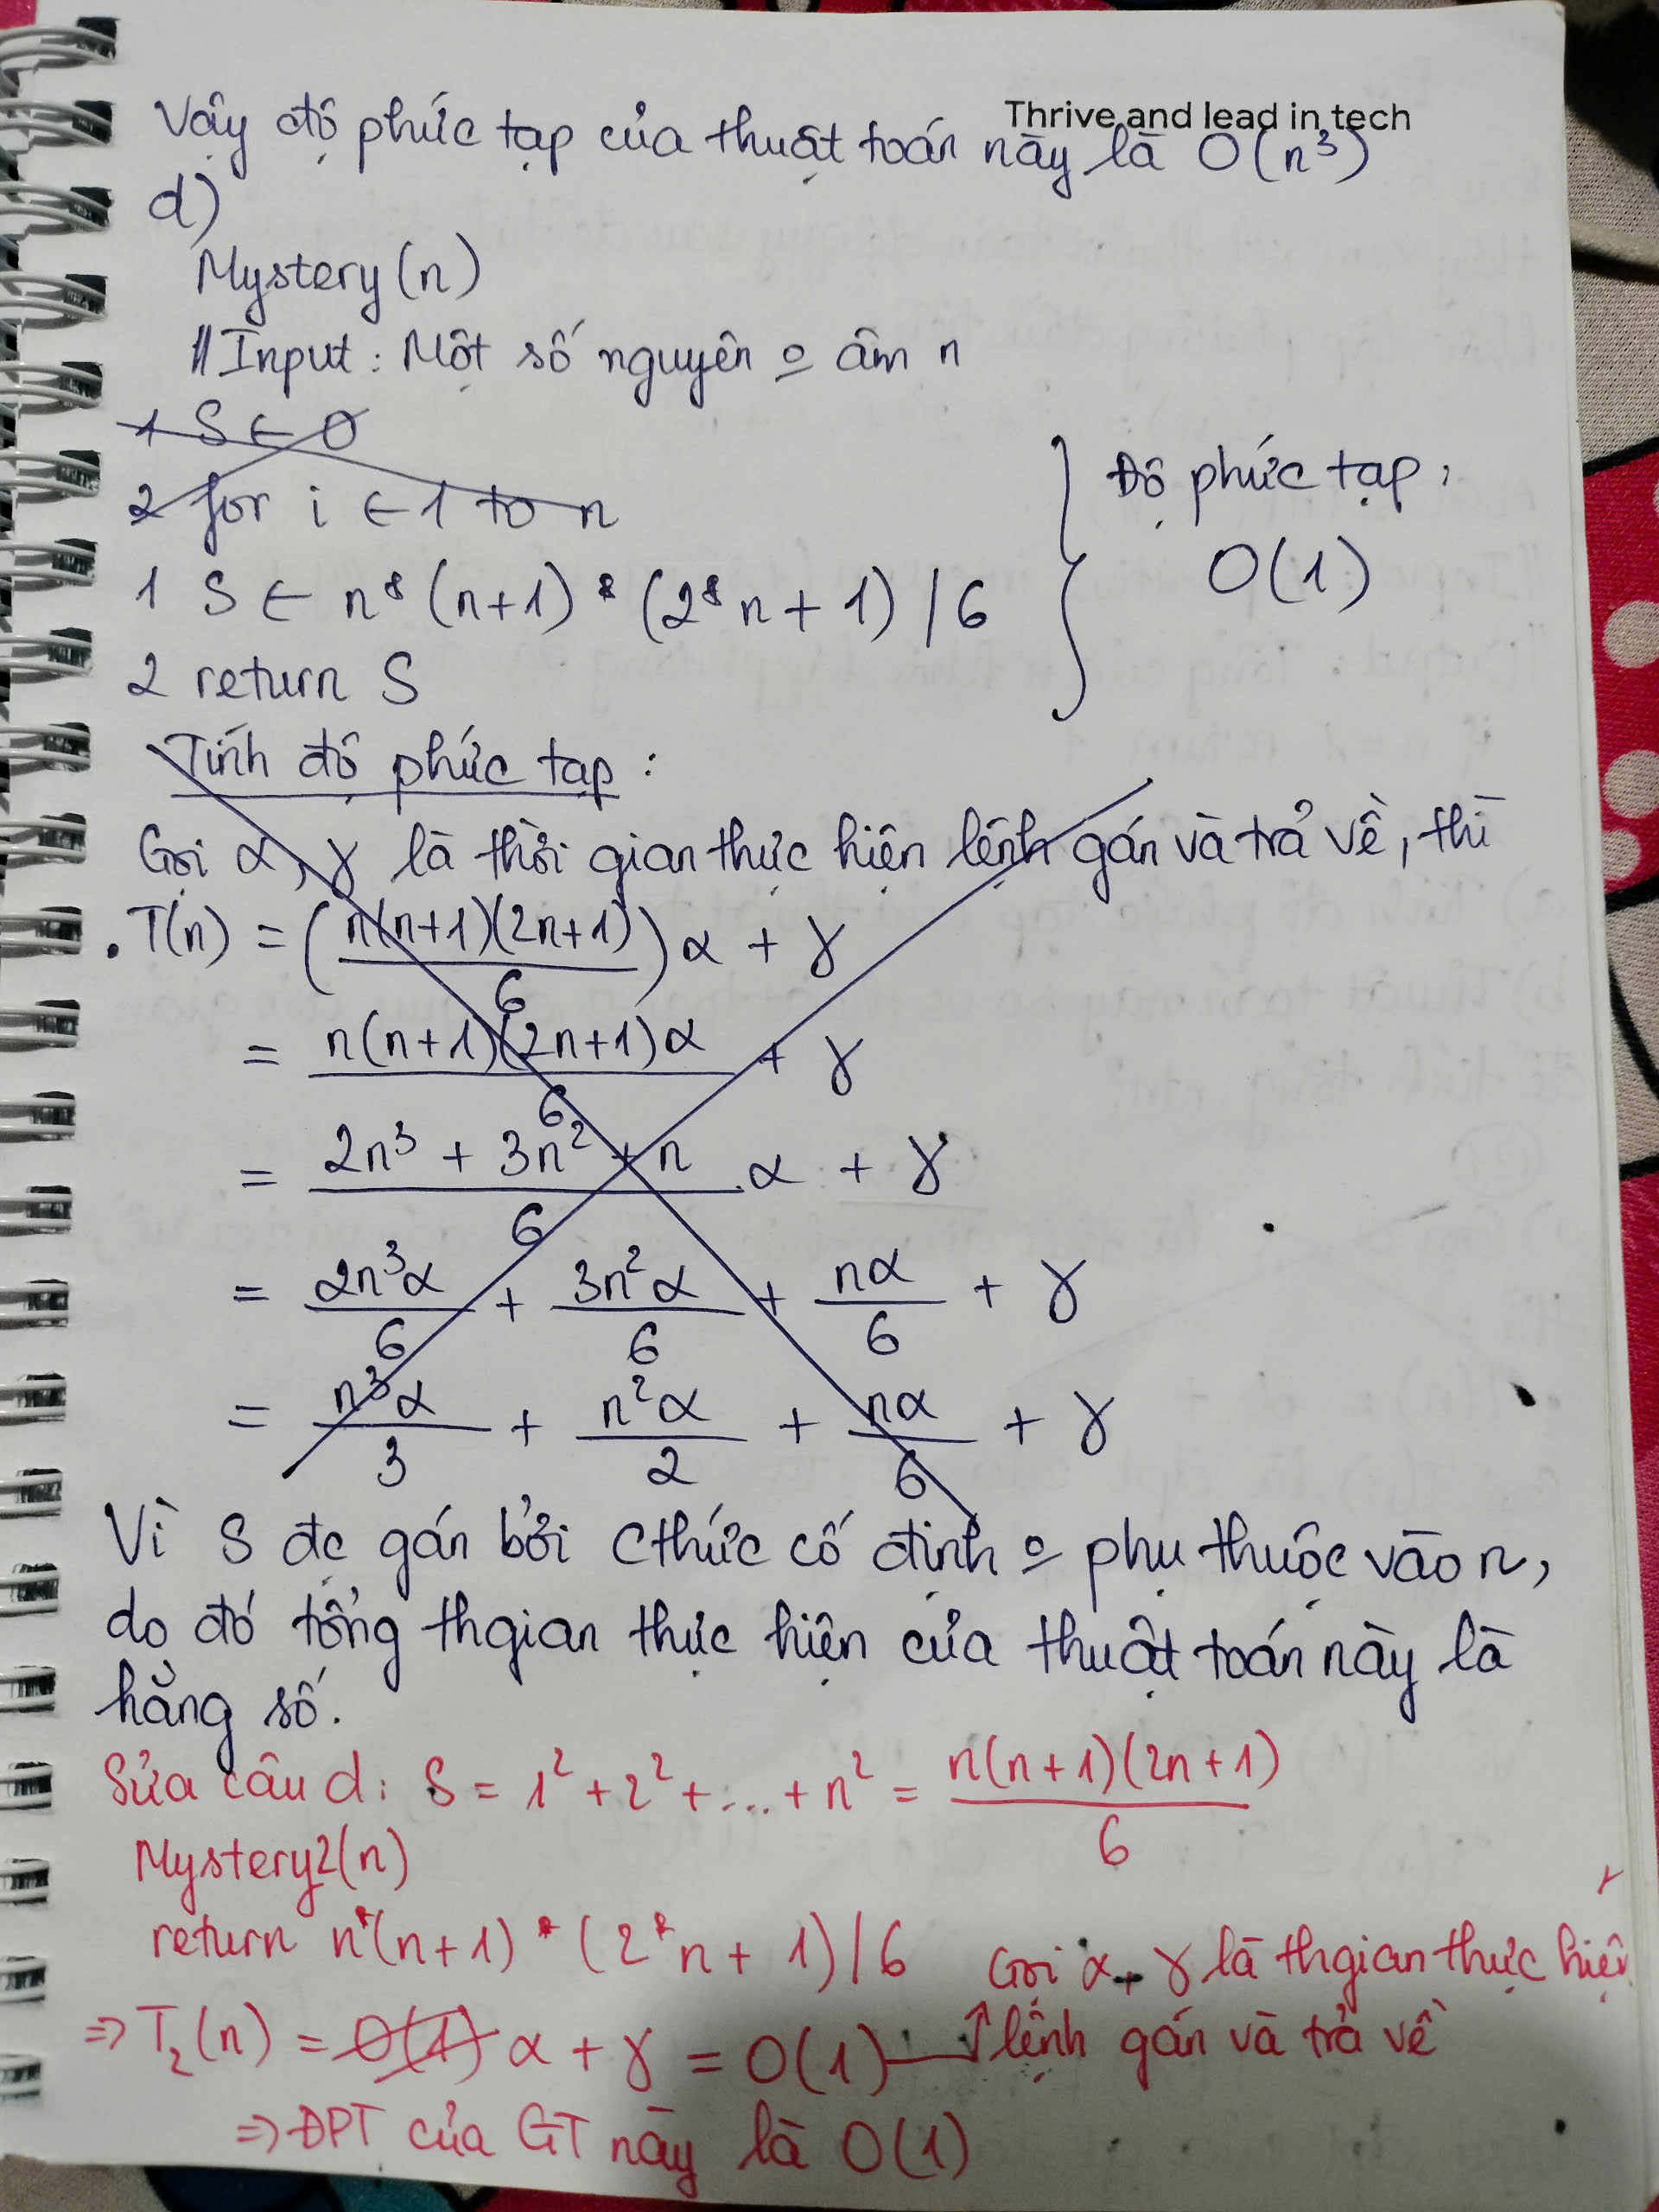 Thrive and lead in tech
Vậy độ phức tạp của thuật toán này là O(n³)
d)
Mystery(n)
// Input: Một số nguyên o̲ âm n
1 S ← 0
2 for i ← 1 to n
1 S ← n*(n+1)*(2*n+1)/6
2 return S
Độ phức tạp:
O(1)
Tính độ phức tạp:
Gọi α, γ là thời gian thực hiện lệnh gán và trả về, thì
. T(n) = (n(n+1)(2n+1)/6)α + γ
= n(n+1)(2n+1)α/6 + γ
= (2n³ + 3n² + n)/6 . α + γ
= 2n³α/6 + 3n²α/6 + nα/6 + γ
= n³α/3 + n²α/2 + nα/6 + γ
Vì S đc gán bởi cthức cố định o̲ phụ thuộc vào n,
do đó tổng thgian thực hiện của thuật toán này là
hằng số.
Sửa câu d: S = 1² + 2² + ... + n² = n(n+1)(2n+1)/6
Mystery2(n)
return n*(n+1)*(2*n+1)/6
Gọi α, γ là thgian thực hiện
lệnh gán và trả về
⇒ T₂(n) = O(1) α + γ = O(1)
⇒ ĐPT của GT này là O(1)